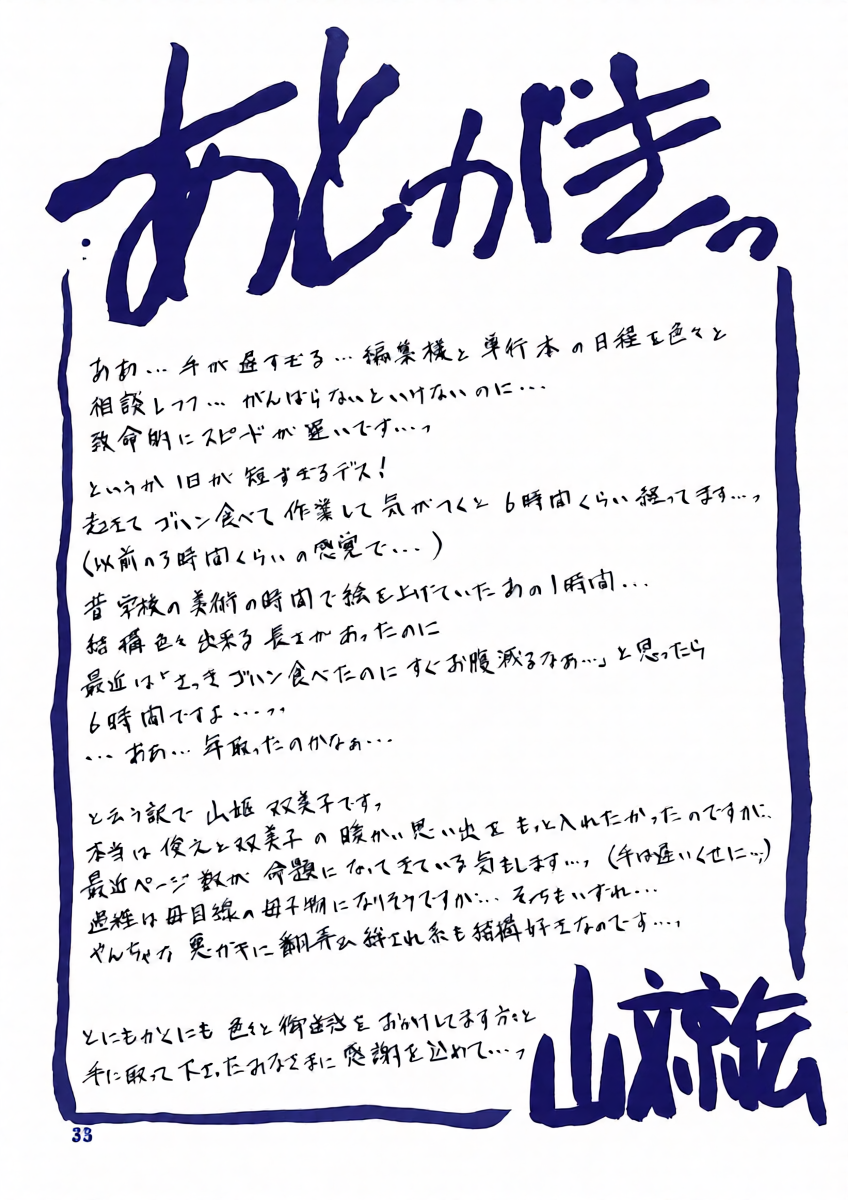 あとがきっ
ああ…手が遅すぎる…編集様と単行本の日程を色々と
相談しつつ…がんばらないといけないのに…
致命的にスピードが遅いです…っ
というか1日が短すぎるデス!
起きてゴハン食べて作業して気がつくと6時間くらい経ってます…っ
(以前の3時間くらいの感覚で…)
昔学校の美術の時間で絵を上げていたあの1時間…
結構色々出来る長さがあったのに
最近は「さっきゴハン食べたのにすぐお腹減るなぁ…」と思ったら
6時間ですよ…っっ
…ああ…年取ったのかなぁ…
と云う訳で山姫双美子ですっ
本当は俊えと双美子の暖かい思い出をもっと入れたかったのですが…
最近ページ数が命題になってきている気もします…っ(手は遅いくせに…っ)
過程は母目線の母子物になりそうですが…そっちもいずれ…
やんちゃな悪ガキに翻弄され系も結構好きなのです…っ
とにもかくにも色々と御迷惑をおかけしてます方々と
手に取って下さったみなさまに感謝を込めて…っ
33